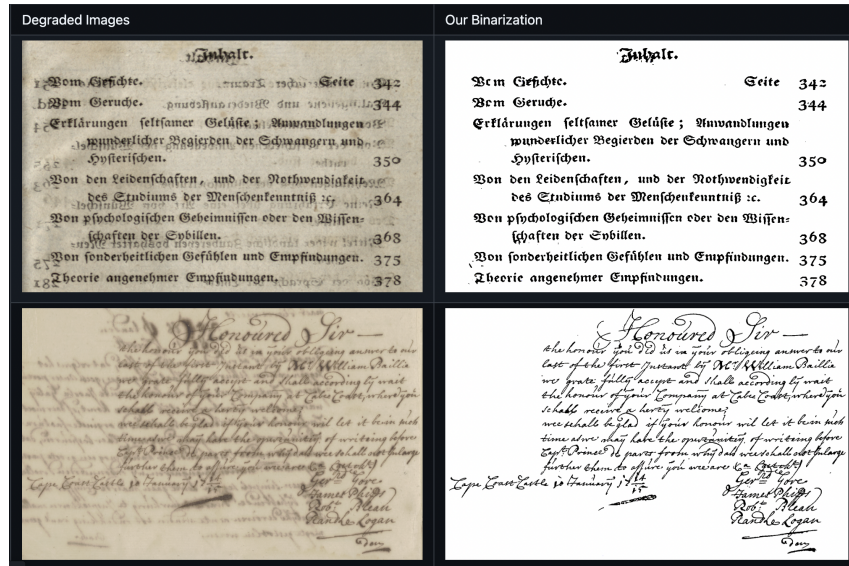 Degraded Images
Our Binarization
Inhalt.
Vom Gesichte. Seite 342
Vom Geruche. 344
Erklärungen seltsamer Gelüste; Anwandlungen
wunderlicher Begierden der Schwangern und
Hysterischen. 350
Von den Leidenschaften, und der Nothwendigkeit
des Studiums der Menschenkenntniß ꝛc. 364
Von psychologischen Geheimnissen oder den Wissen-
schaften der Sybillen. 368
Von sonderheitlichen Gefühlen und Empfindungen. 375
Theorie angenehmer Empfindungen. 378
Inhalt.
Vom Gesichte. Seite 342
Vom Geruche. 344
Erklärungen seltsamer Gelüste; Anwandlungen
wunderlicher Begierden der Schwangern und
Hysterischen. 350
Von den Leidenschaften, und der Nothwendigkeit
des Studiums der Menschenkenntniß ꝛc. 364
Von psychologischen Geheimnissen oder den Wissen-
schaften der Sybillen. 368
Von sonderheitlichen Gefühlen und Empfindungen. 375
Theorie angenehmer Empfindungen. 378
Honoured Sir
the honour you did us in your obligeing answer to our
last of the first Instant by Mr. William Baillie
we grate fully accept and shall according by wait
the honour of your Company at Cabo Coast, where you
schall receive a herty welcome;
we schall be glad if your honour wil let it be in
time and we may have the opurtunity of writeing before
Capt. Prince de parts from why dah we shall not Inlarge
further them to assure you we are
Cape Coast Castle 10 January
Ger Gore
James Phipps
Rob Bleau
Randle Logan
Honoured Sir
the honour you did us in your obligeing answer to our
last of the first Instant by Mr. William Baillie
we grate fully accept and shall according by wait
the honour of your Company at Cabo Coast, where you
schall receive a herty welcome;
we schall be glad if your honour wil let it be in
time and we may have the opurtunity of writeing before
Capt. Prince de parts from why dah we shall not Inlarge
further them to assure you we are
Cape Coast Castle 10 January
Ger Gore
James Phipps
Rob Bleau
Randle Logan